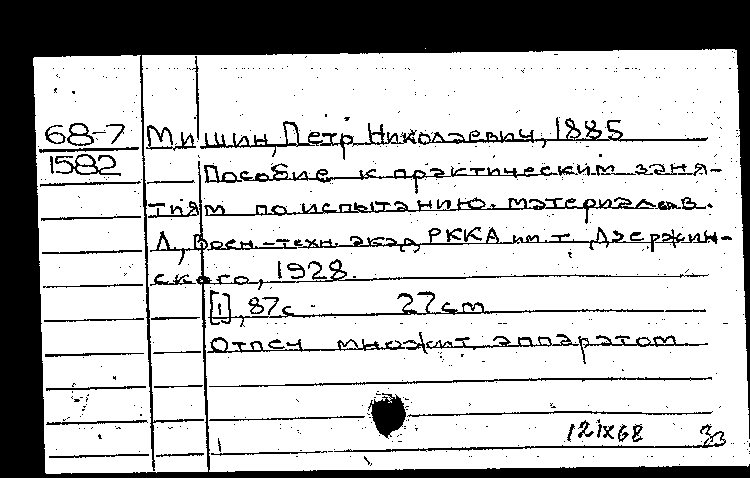 68-7 Мишин, Петр Николаевич, 1885
1582 Пособие к практическим заня-
тиям по испытанию материалов.
Л., Воен.-техн. акад. РККА им. т. Дзержин-
ского, 1928.
[1], 87с. 27см
Отпеч. множит. аппаратом
12 IX 68